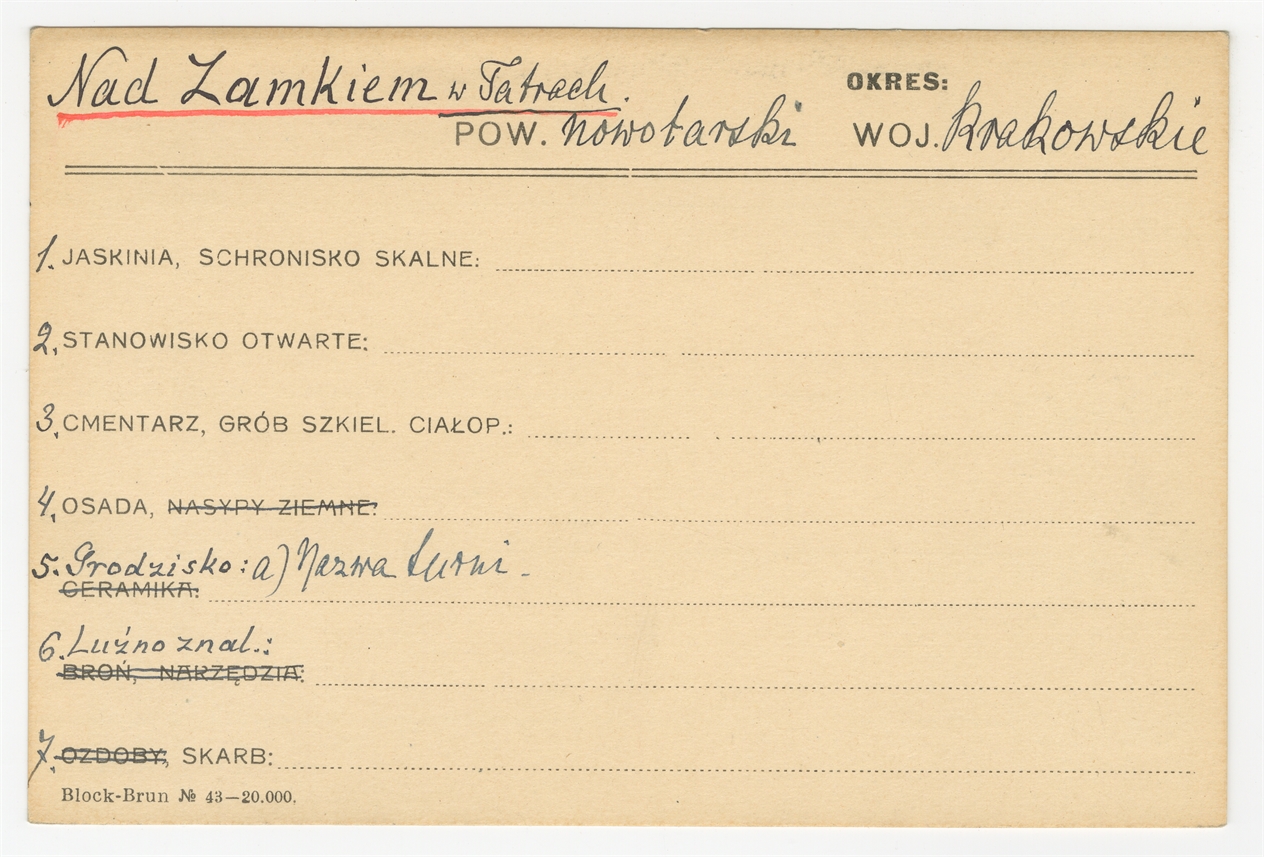 Nad Zamkiem w Tatrach. OKRES:
POW. nowotarski WOJ. Krakowskie
1. JASKINIA, SCHRONISKO SKALNE:
2. STANOWISKO OTWARTE:
3. CMENTARZ, GRÓB SZKIEL. CIAŁOP.:
4. OSADA, NASYPY ZIEMNE:
5. Grodzisko: a) Nazwa turni.
CERAMIKA:
6. Luźno znal.:
BROŃ, NARZĘDZIA:
7. OZDOBY, SKARB:
Block-Brun № 43—20.000.